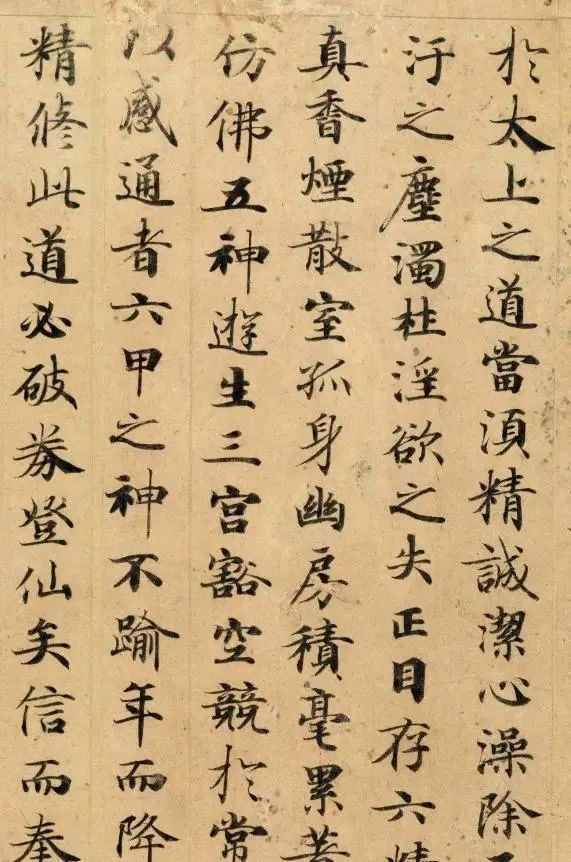 於太上之道當須精誠潔心澡除
汙之塵濁杜淫欲之失正目存六精
真香煙散室孤身幽房積毫累著
仿佛五神遊生三宮豁空競於常
以感通者六甲之神不踰年而降
精脩此道必破券登仙矣信而奉